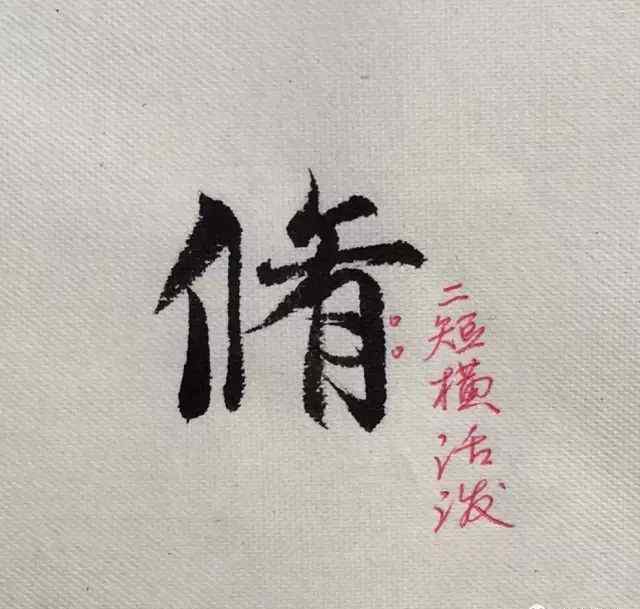 脩
二短横活泼